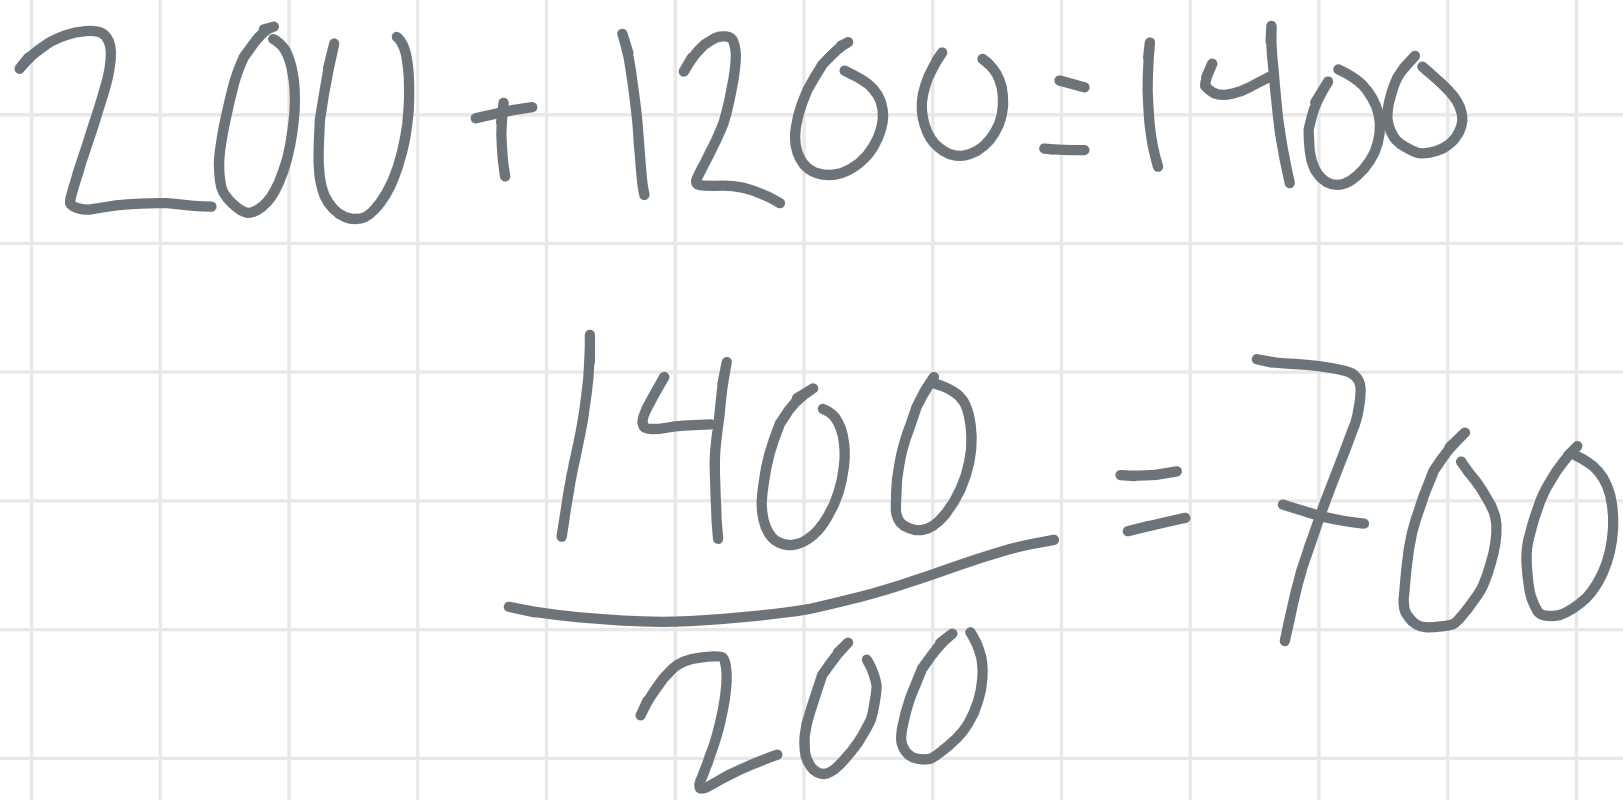 200 + 1200 = 1400
1400
200
= 700